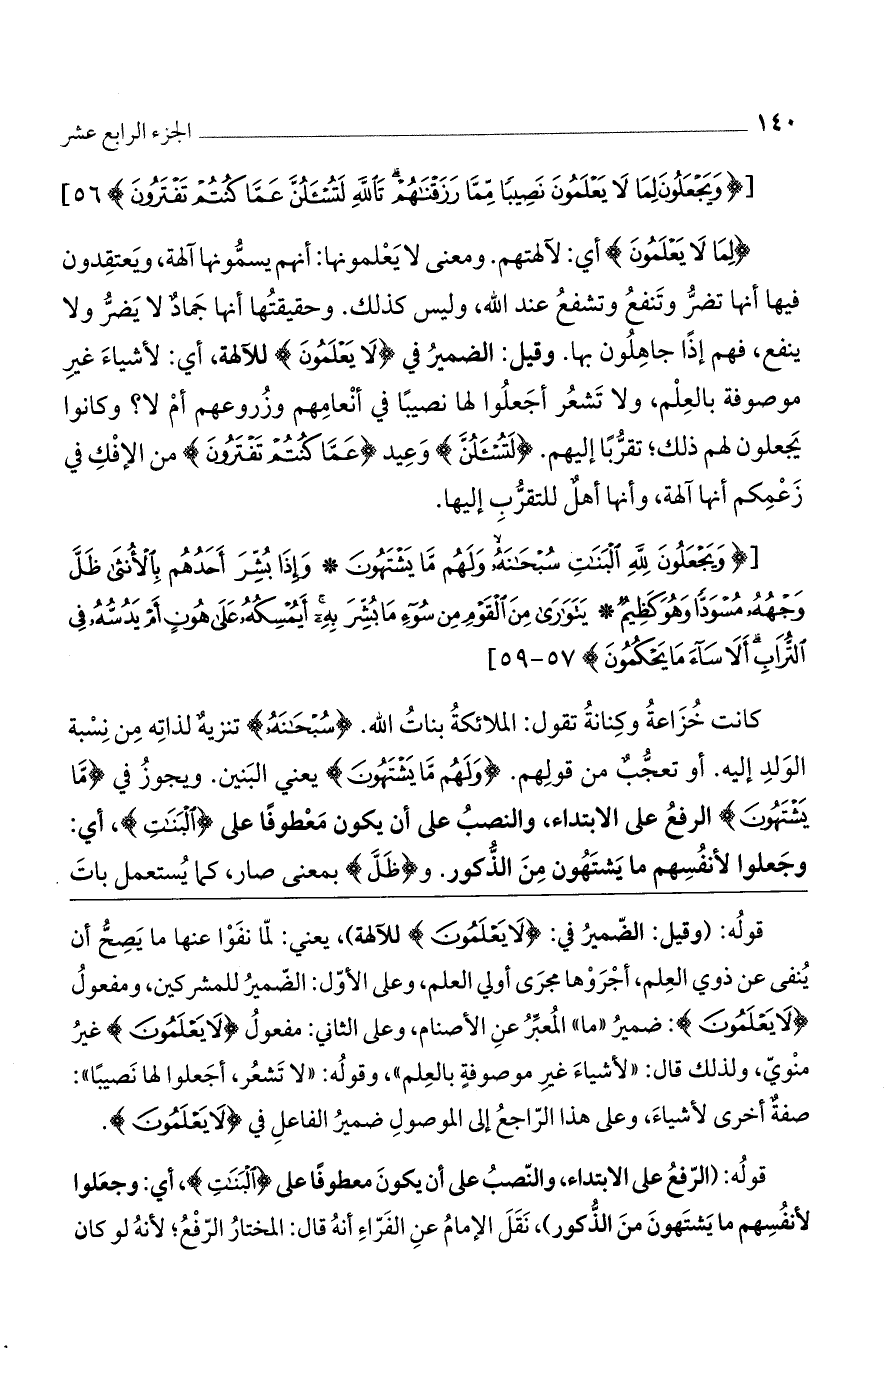 ١٤٠ الجزء الرابع عشر
[﴿وَيَجْعَلُونَ لِمَا لَا يَعْلَمُونَ نَصِيبًا مِّمَّا رَزَقْنَاهُمْ ۗ تَاللَّهِ لَتُسْأَلُنَّ عَمَّا كُنتُمْ تَفْتَرُونَ﴾ ٥٦]
﴿لِمَا لَا يَعْلَمُونَ﴾ أي: لآلهتهم. ومعنى لا يَعْلمونها: أنهم يسمُّونها آلهة، ويَعتقِدون
فيها أنها تضرُّ وتَنفعُ وتشفعُ عند الله، وليس كذلك. وحقيقتُها أنها جَمادٌ لا يَضرُّ ولا
ينفع، فهم إذًا جاهِلُون بها. وقيل: الضميرُ في ﴿لَا يَعْلَمُونَ﴾ للآلهة، أي: لأشياءَ غيرِ
موصوفة بالعِلْم، ولا تَشعُر أجَعلُوا لها نصيبًا في أنْعامِهم وزُروعهم أمْ لا؟ وكانوا
يَجعلون لهم ذلك؛ تقرُّبًا إليهم. ﴿لَتُسْأَلُنَّ﴾ وَعِيد ﴿عَمَّا كُنتُمْ تَفْتَرُونَ﴾ من الإفْكِ في
زَعْمِكم أنها آلهة، وأنها أهلٌ للتقرُّبِ إليها.
[﴿وَيَجْعَلُونَ لِلَّهِ الْبَنَاتِ سُبْحَانَهُ ۙ وَلَهُم مَّا يَشْتَهُونَ * وَإِذَا بُشِّرَ أَحَدُهُم بِالْأُنثَىٰ ظَلَّ
وَجْهُهُ مُسْوَدًّا وَهُوَ كَظِيمٌ * يَتَوَارَىٰ مِنَ الْقَوْمِ مِن سُوءِ مَا بُشِّرَ بِهِ ۚ أَيُمْسِكُهُ عَلَىٰ هُونٍ أَمْ يَدُسُّهُ فِي
التُّرَابِ ۗ أَلَا سَاءَ مَا يَحْكُمُونَ﴾ ٥٧-٥٩]
كانت خُزَاعةُ وكِنانةُ تقول: الملائكةُ بناتُ الله. ﴿سُبْحَانَهُ﴾ تنزيهٌ لذاتِه مِن نِسْبة
الوَلدِ إليه. أو تعجُّبٌ من قولِهم. ﴿وَلَهُم مَّا يَشْتَهُونَ﴾ يعني البَنين. ويجوزُ في ﴿مَّا
يَشْتَهُونَ﴾ الرفعُ على الابتداء، والنصبُ على أن يكون مَعْطوفًا على ﴿الْبَنَاتِ﴾، أي:
وجَعلوا لأنفُسِهم ما يَشتهُون مِنَ الذُّكور. و﴿ظَلَّ﴾ بمعنى صار، كما يُستعمل باتَ
قولُه: (وقيل: الضّميرُ في: ﴿لَا يَعْلَمُونَ﴾ للآلهة)، يعني: لمّا نفَوْا عنها ما يَصِحُّ أن
يُنفى عن ذوي العِلم، أجْرَوْها مجرَى أولي العلم، وعلى الأوّل: الضّميرُ للمشركين، ومفعولُ
﴿لَا يَعْلَمُونَ﴾: ضميرُ «ما» المُعبِّرُ عنِ الأصنام، وعلى الثاني: مفعولُ ﴿لَا يَعْلَمُونَ﴾ غيرُ
منْويّ، ولذلك قال: «لأشياءَ غيرِ موصوفةٍ بالعِلم»، وقولُه: «لا تَشعُر، أجَعلوا لها نَصيبًا»:
صفةٌ أخرى لأشياءَ، وعلى هذا الرّاجعُ إلى الموصولِ ضميرُ الفاعلِ في ﴿لَا يَعْلَمُونَ﴾.
قولُه: (الرّفعُ على الابتداء، والنّصبُ على أن يكونَ معطوفًا على ﴿الْبَنَاتِ﴾، أي: وجعَلوا
لأنفُسِهم ما يَشتَهونَ منَ الذُّكور)، نَقَلَ الإمامُ عنِ الفَرّاءِ أنهُ قال: المختارُ الرّفْعُ؛ لأنهُ لو كان